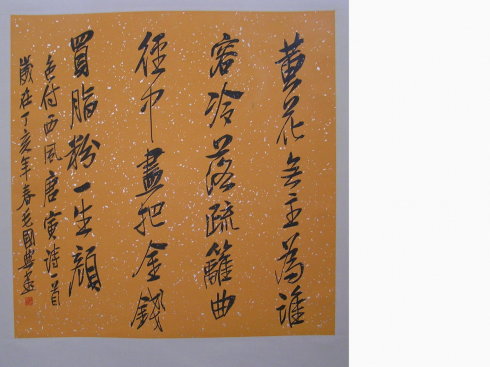 黄花無主為誰
容冷落疏籬曲
徑中盡把金錢
買脂粉一生顏
色付西風唐寅詩一首
歲在丁亥年春